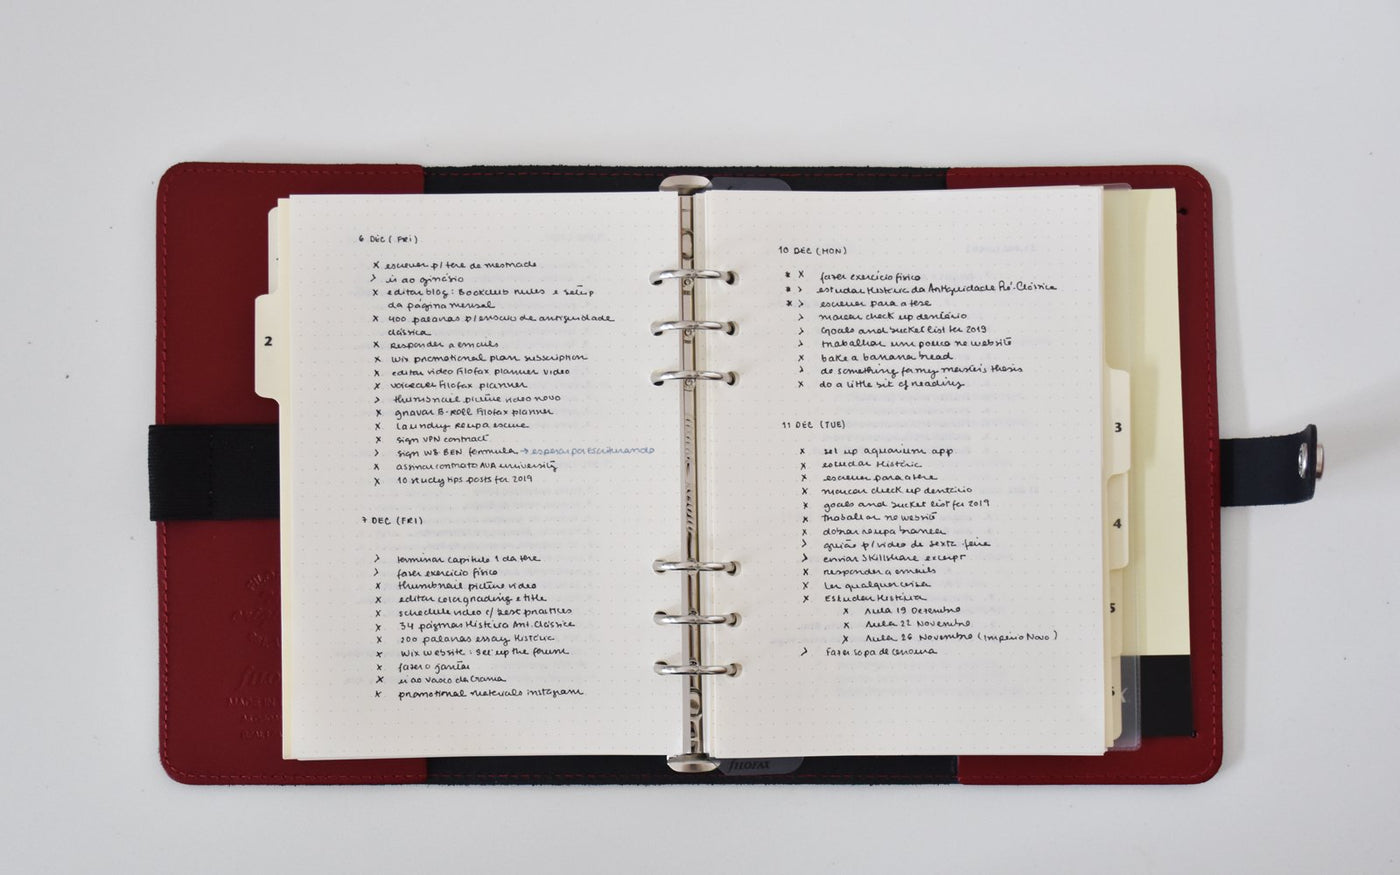 6 DEC (FRI)
x escrever p/ tese de mestrado
> ir ao ginásio
x editar blog: Bookclub rules e setup
da página mensal
x 400 palavras p/ ensaio de antiguidade
clássica
x Responder a emails
x Wix promotional plan subscription
x editar video Filofax planner video
x voiceover Filofax planner
> thumbnail picture video novo
x gravar B-Roll Filofax planner
x Laundry roupa escura
x sign VPN contract
> sign W8 BEN formula → esperar por Escriturando
x assinar contrato AVA university
x 10 study tips posts for 2019
7 DEC (FRI)
> terminar capítulo 1 da tese
> fazer exercício físico
x thumbnail picture video
x editar color grading e title
x schedule video c/ best practices
x 34 páginas História Ant. Clássica
x 200 palavras essay História
x Wix website: set up the forum
x fazer o jantar
x ir ao Vasco da Gama
x promotional materials instagram
10 DEC (MON)
* x fazer exercício físico
* > estudar História da Antiguidade Pré-Clássica
* > escrever para a tese
> marcar check up dentário
> Goals and bucket list for 2019
> trabalhar um pouco no website
x bake a banana bread
> do something for my master's thesis
x do a little bit of reading
11 DEC (TUE)
x set up aquarium app
x estudar História
x escrever para a tese
x marcar check up dentário
x goals and bucket list for 2019
x trabalhar no website
x dobrar roupa branca
> guião p/ video de sexta feira
> enviar Skillshare excerpt
x responder a emails
x Ler qualquer coisa
x Estudar História
x Aula 19 Dezembro
x Aula 22 Novembro
x Aula 26 Novembro (Império Novo)
> Fazer sopa de cenoura
2
3
4
5
filofax
MADE IN
FILOFAX